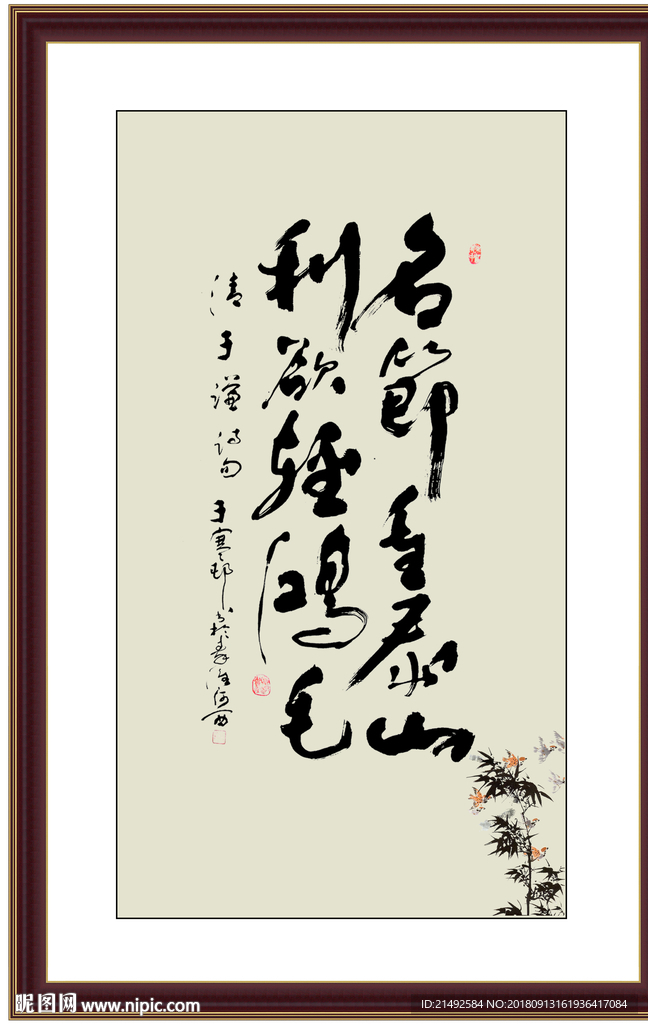 名節重泰山
利欲輕鴻毛
清于謙詩句
于寒邨书於秦淮河西
昵图网 www.nipic.com
ID:21492584 NO:20180913161936417084